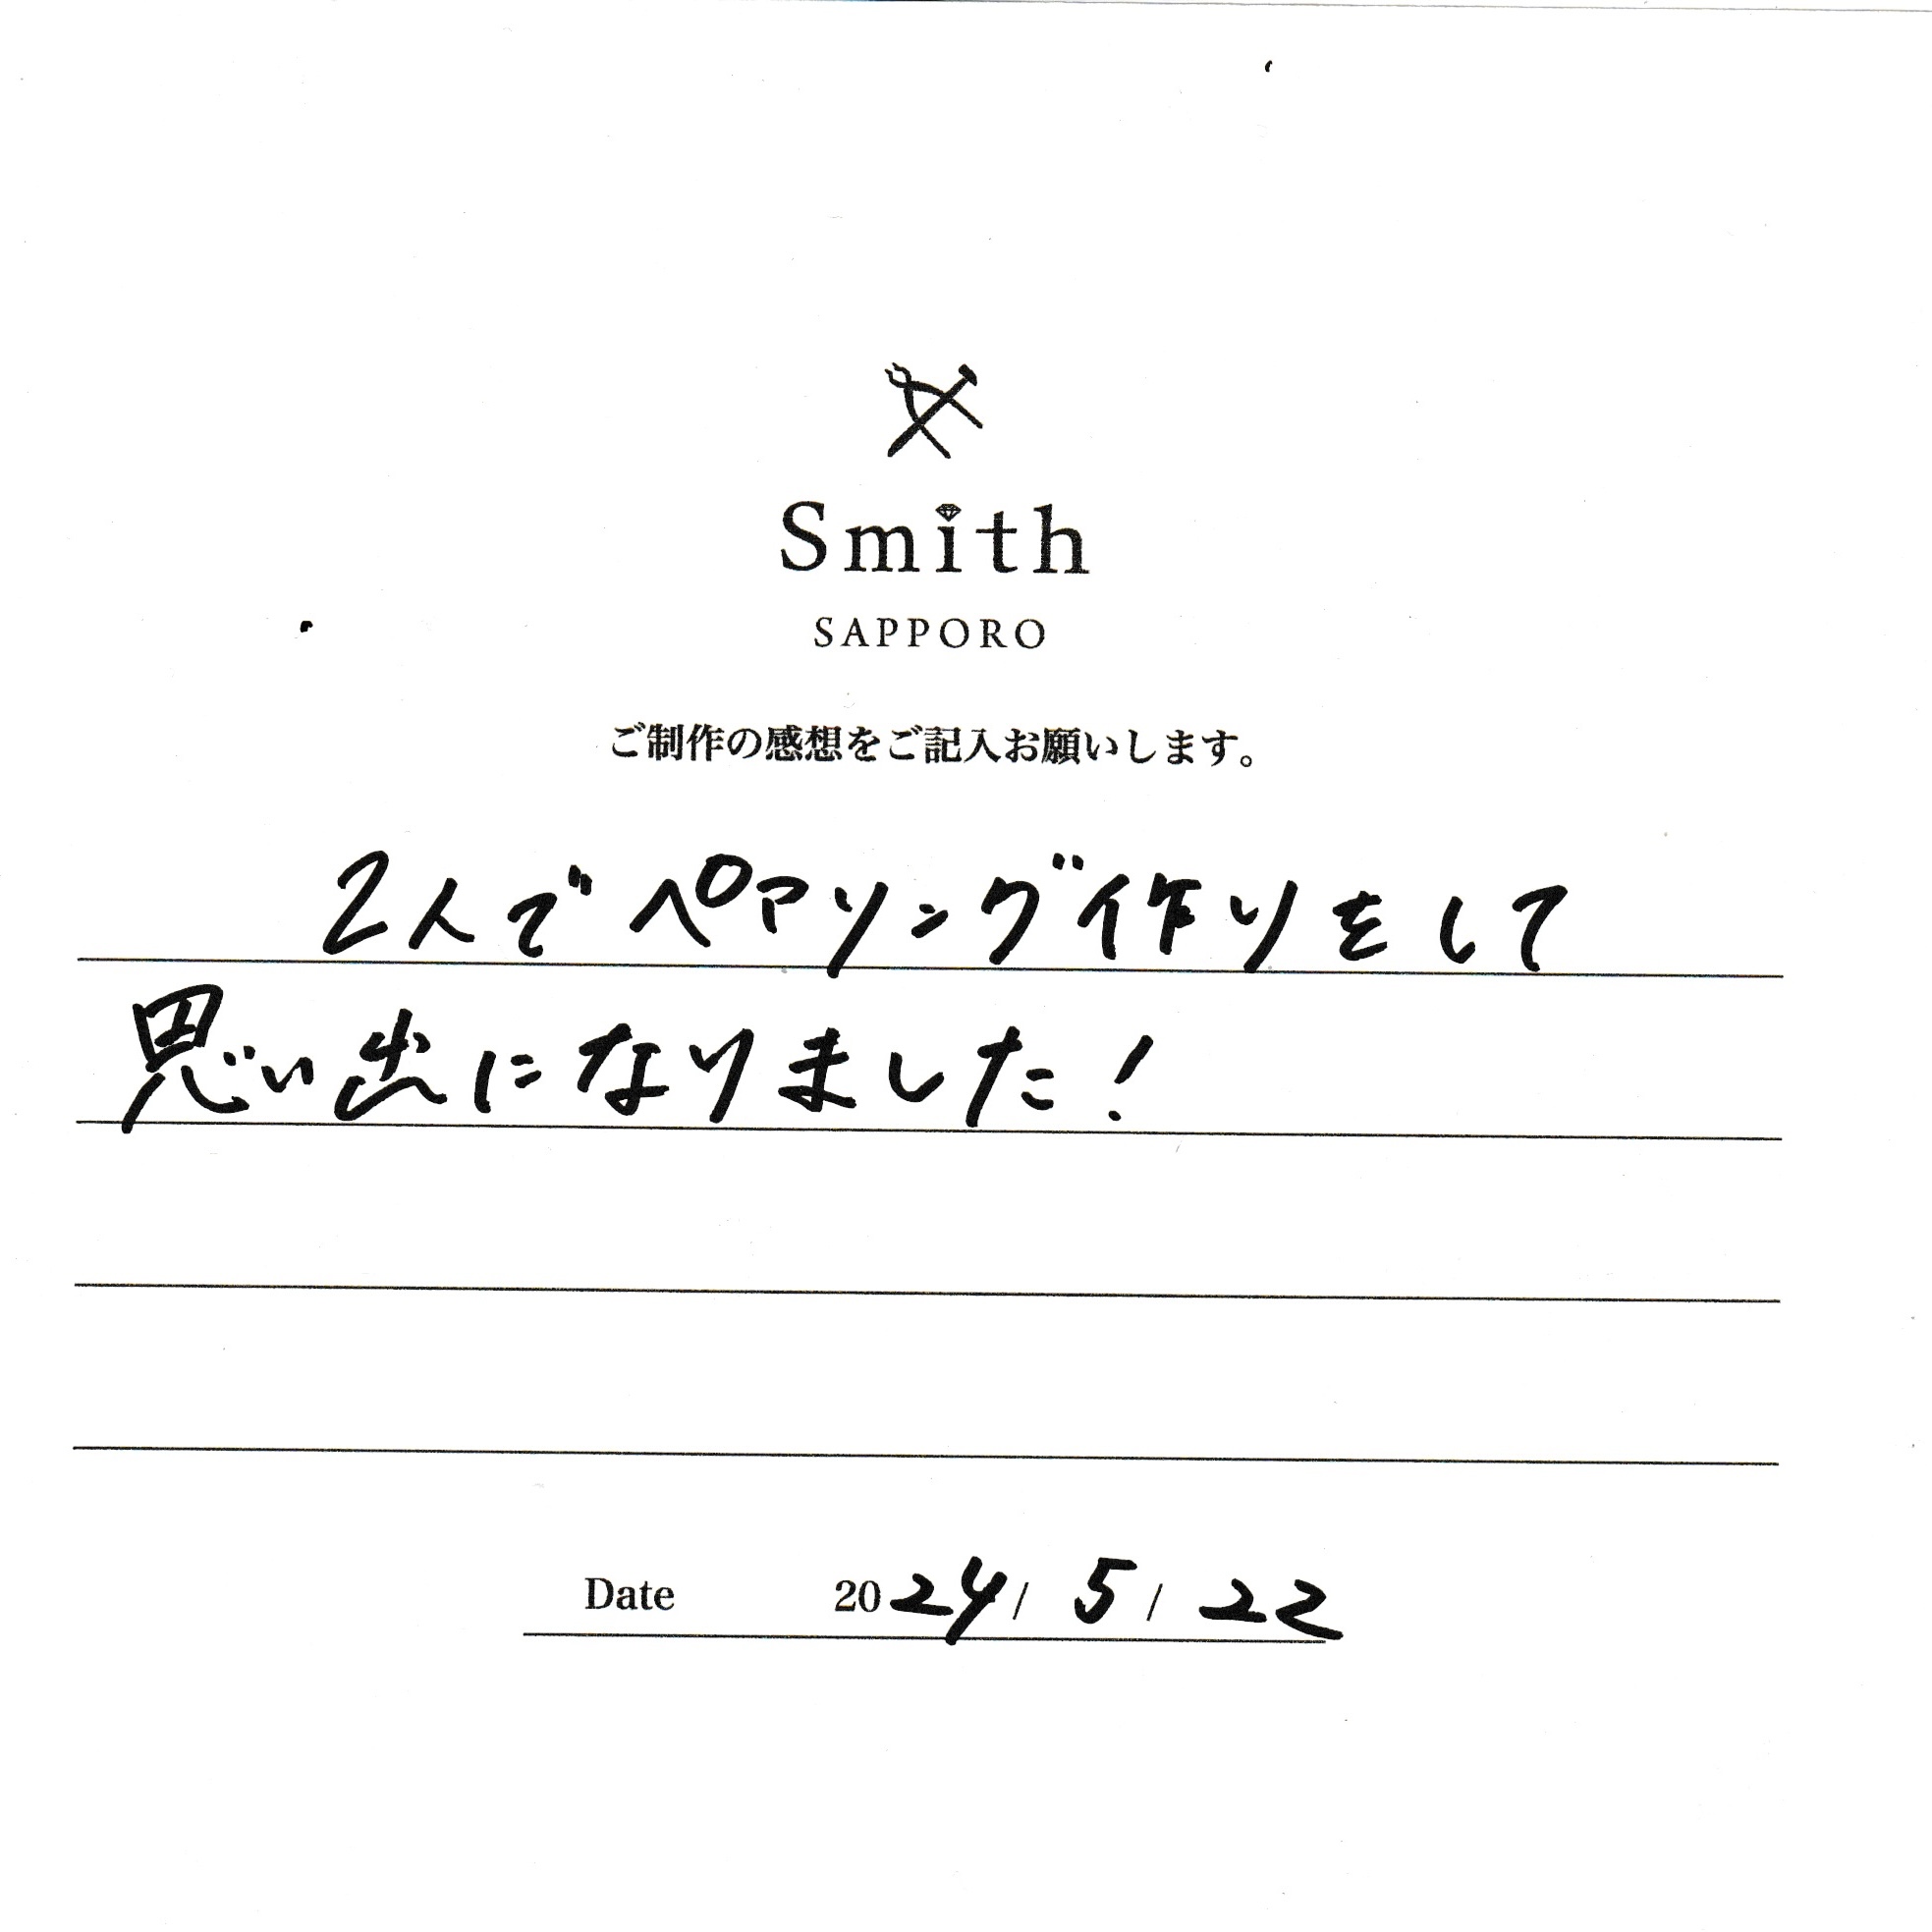 Smith
SAPPORO
ご制作の感想をご記入お願いします。
2人でペアリング作りをして
思い出になりました!
Date 2024/ 5/ 22